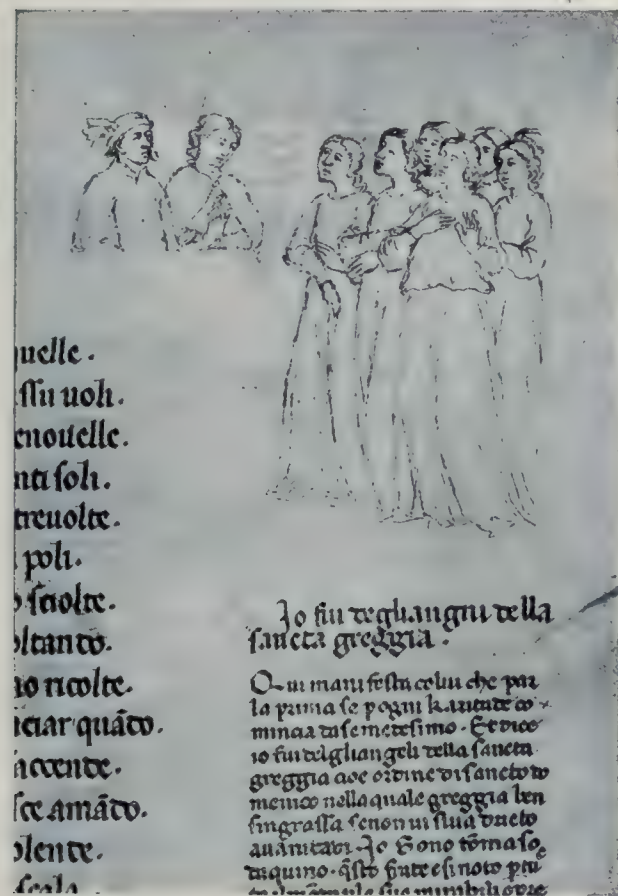 uelle.
ssu uoli.
enouelle.
nti soli.
treuolte.
poli.
o sciolte.
oltando.
no ricolte.
nciar quādo.
accende.
sce amādo.
olente.
scala.
Jo fui degli angnii della
sancta greggia.
Qui manifesta colui che par
la prima se p ogni karitade co
mincia da se medesimo. Et dice
io fui delgliangeli della sancta
greggia cioe ordine di sancto do
menico nella quale greggia ben
singrassa se non ui si ua drieto
a uanitadi. Jo Sono tōmaso
daquino. q̄sto frate e si noto p tu
le sue mirabili ope